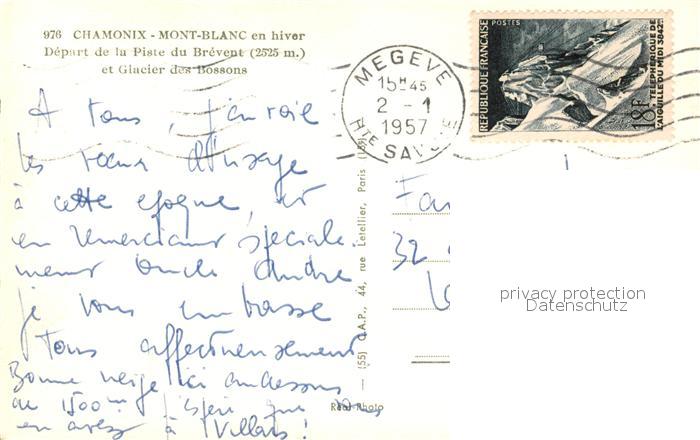 976 CHAMONIX - MONT-BLANC en hiver
Départ de la Piste du Brévent (2525 m.)
et Glacier des Bossons
MEGEVE
15H45
2 - 1
1957
HTE SAVOIE
REPUBLIQUE FRANÇAISE
POSTES
18F
TÉLÉPHÉRIQUE DE
L'AIGUILLE DU MIDI 3842m
A tous, j'envoie
les voeux d'usage
à cette époque, et
en remerciant spéciale-
ment Oncle André
je vous embrasse
Tous affectueusement
Bonne neige ici au dessus
de 1500m j'espère que vous
en avez à Villars!
(55) C.A.P., 44, rue Letellier, Paris (15e)
Real Photo
Fa
32
privacy protection
Datenschutz